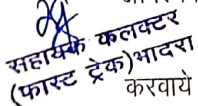 सहायक कलक्टर
(फास्ट ट्रेक)भादरा
करवाये